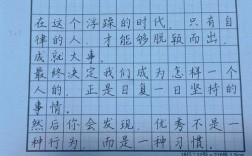 在这个浮躁的时代，只有自
律的人，才能够脱颖而出，
成就大事。
最终决定我们成为怎样一个
人的，正是日复一日坚持的
事情。
然后你会发现，优秀不是一
种行为，而是一种习惯。